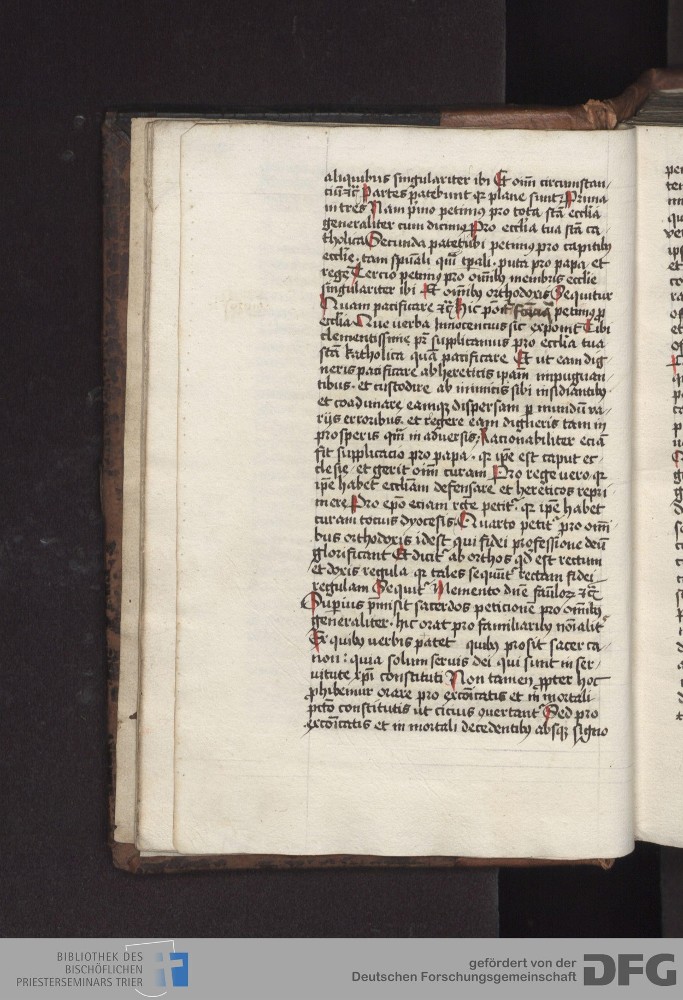 aliquibus singulariter ibi Et oim̄ circumstan/
ciū ⁊c̄ Partes patebunt qꝛ plane sunt Prima
in tres Nam p̄mo petimꝰ pro tota sc̄a eccl̄ia
generaliter cum dicimꝰ Pro eccl̄ia tua sc̄a ca
tholica Secunda patet ubi petimꝰ pro capitibꝫ
eccl̄ie . tam sp̄uali qm̄ tp̄ali . puta pro papa . et
rege Tercio petimꝰ pro om̄ibꝫ membris eccl̄ie
singulariter ibi Et om̄ibꝫ orthodoxis Sequitur
Quam pacificare ⁊c̄ Hic petimꝰ ꝑ
eccl̄ia Que verba Innocencius sic exponit Tibi
clementissime pr̄ supplicamus pro eccl̄ia tua
sc̄a katholica quā pacificare Et ut eam dig
neris pacificare ab hereticis ip̄am inpugnan
tibus . et custodire ab inimicis sibi insidiantibꝫ
et coadunare eamqꝫ dispersam ꝑ mundū va/
rijs erroribus . et regere eam digneris tam in
prosperis qm̄ in adversis Racionabiliter eciā
fit supplicacio pro papa . qꝛ ip̄e est caput ec
clesie . et gerit oim̄ curam Pro rege vero qꝛ
ip̄e habet eccl̄iam defensare et hereticos repri
mere Pro ep̄o eciam rc̄te petitꝰ . qꝛ ip̄e habet
curam tocius dyocesis Quarto petitꝰ pro om̄i
bus orthodoxis idest qui fidei professione deū
glorificant Et dicitꝰ ab orthos qd̄ est rectum
et doxis regula qꝛ tales sequūtꝰ rectam fidei
regulam Sequitꝰ Memento dn̄e fam̄loꝝ ⁊c̄
Superius p̄misit sacerdos peticionē pro om̄ibꝫ
generaliter . hic orat pro familiaribꝫ noīalitꝰ
Ex quibꝫ verbis patet quibꝫ prosit sacer ca
non : quia solum servis dei qui sunt in ser/
vitute xp̄i constituti Non tamen ꝓpter hoc
ꝓhibemur orare pro excōicatis et in mortali
pctō constitutis ut cicius ꝯvertantꝰ Sed pro
excōicatis et in mortali decedentibꝫ absqꝫ signo
BIBLIOTHEK DES
BISCHÖFLICHEN
PRIESTERSEMINARS TRIER
gefördert von der
Deutschen Forschungsgemeinschaft
DFG